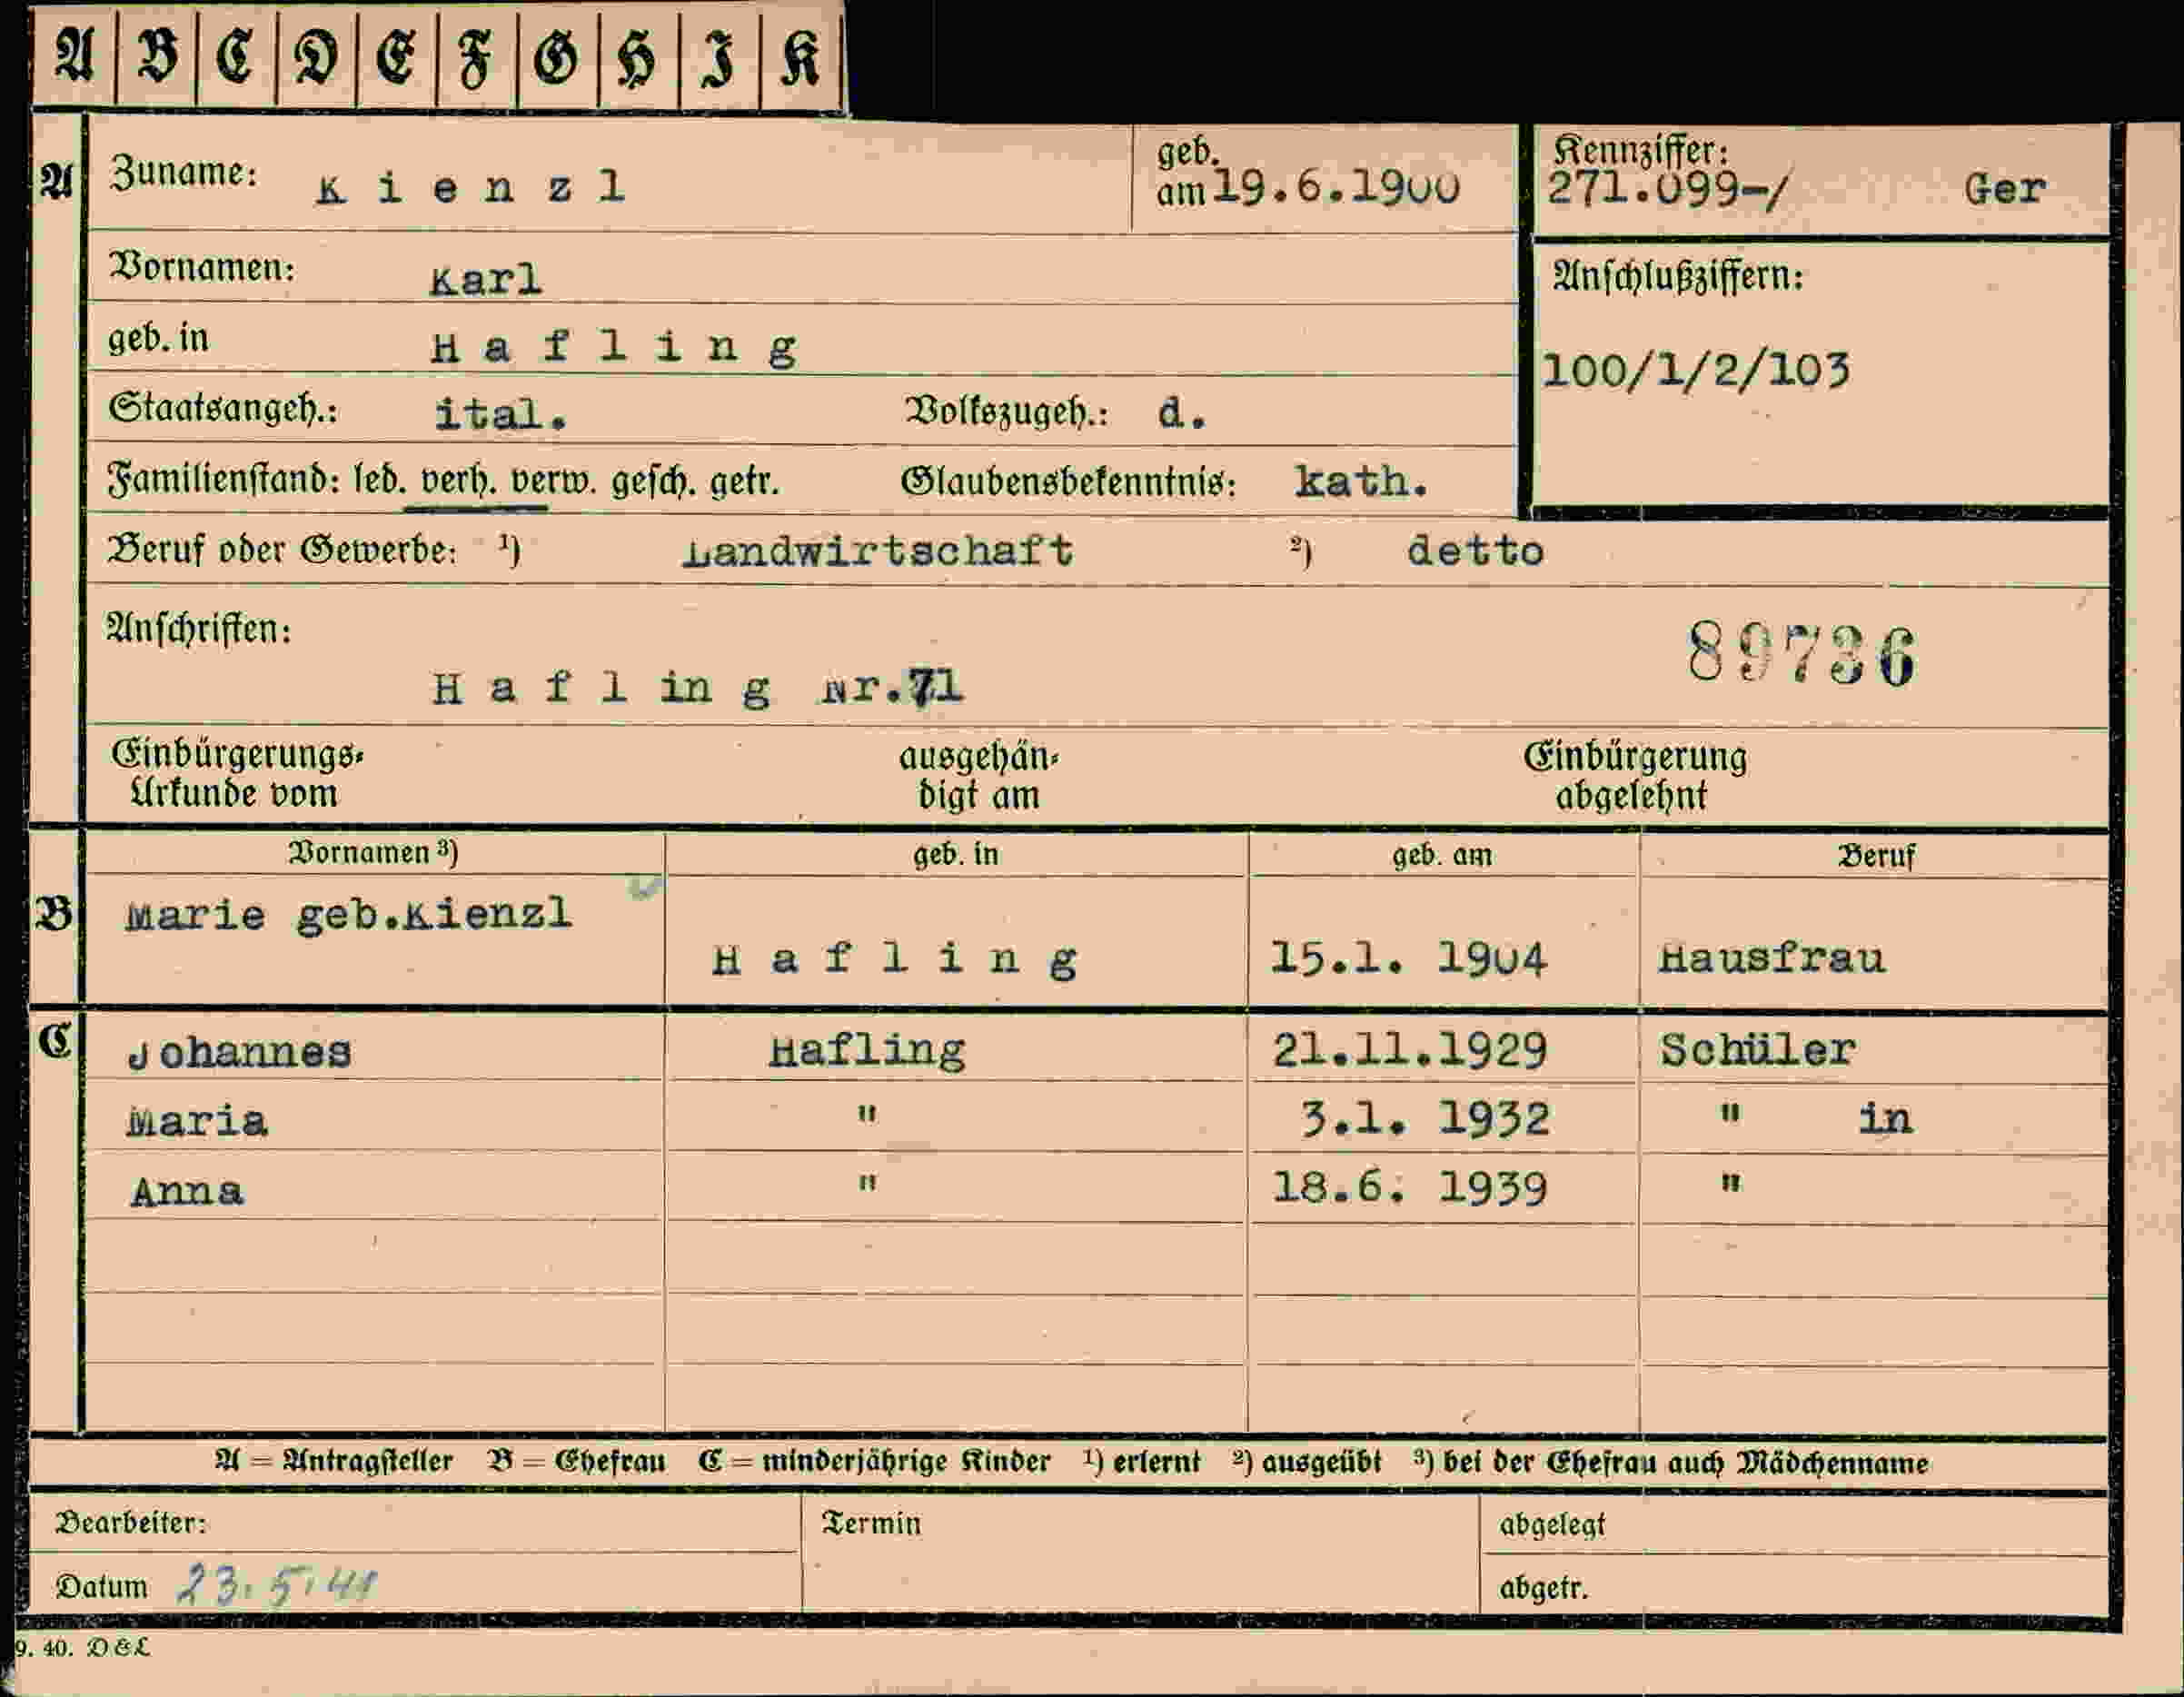 A B C D E F G H I K
A Zuname: Kienzl geb. am 19.6.1900 Kennziffer: 271.099-/ Ger
Vornamen: Karl Anschlußziffern:
geb. in Hafling 100/1/2/103
Staatsangeh.: ital. Volkszugeh.: d.
Familienstand: led. verh. verw. gesch. getr. Glaubensbekenntnis: kath.
Beruf oder Gewerbe: ¹) Landwirtschaft ²) detto
Anschriften: 89736
Hafling Nr.71
Einbürgerungs- ausgehän- Einbürgerung
Urkunde vom digt am abgelehnt
Vornamen ³) geb. in geb. am Beruf
B Marie geb.Kienzl
Hafling 15.1. 1904 Hausfrau
C Johannes Hafling 21.11.1929 Schüler
Maria " 3.1. 1932 " in
Anna " 18.6. 1939 "
A = Antragsteller B = Ehefrau C = minderjährige Kinder ¹) erlernt ²) ausgeübt ³) bei der Ehefrau auch Mädchenname
Bearbeiter: Termin abgelegt
Datum 23.5.41 abgetr.
9. 40. D&L